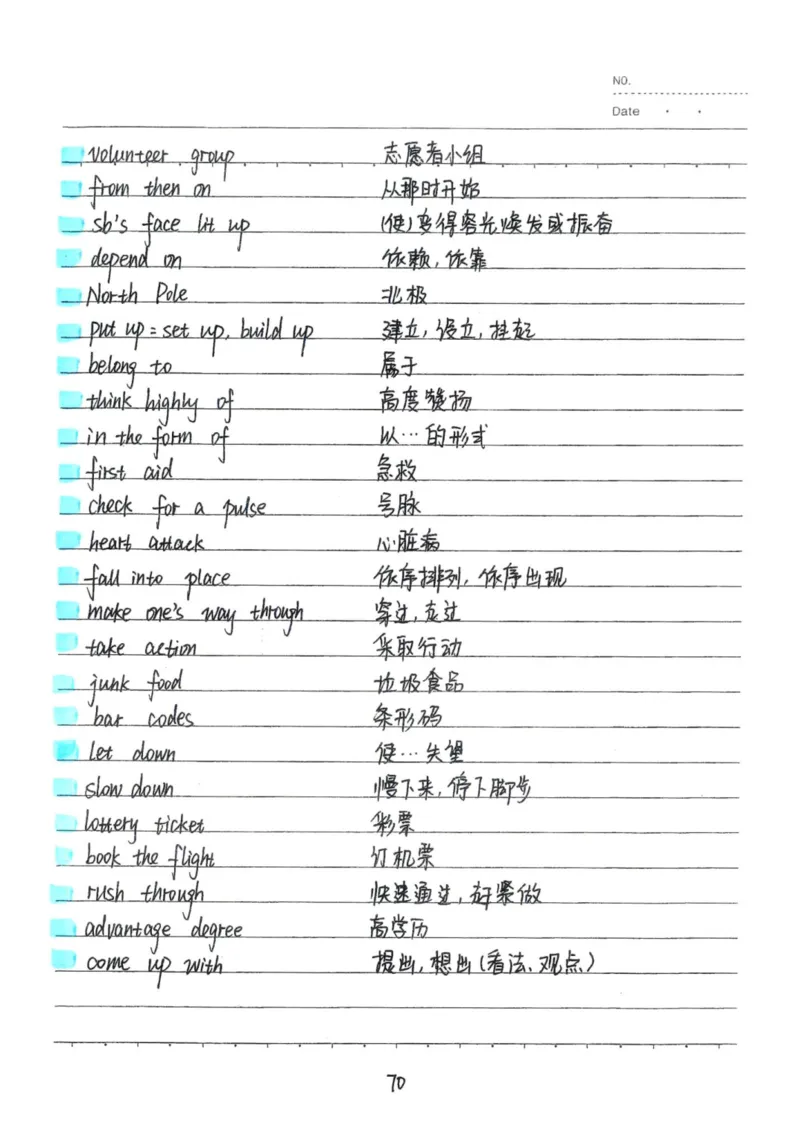 NO.
Date
volunteer group 志愿者小组
from then on 从那时开始
sb's face lit up (使)变得容光焕发或振奋
depend on 依赖,依靠
North Pole 北极
put up = set up, build up 建立,设立,挂起
belong to 属于
think highly of 高度赞扬
in the form of 以…的形式
first aid 急救
check for a pulse 号脉
heart attack 心脏病
fall into place 依序排列,依序出现
make one's way through 穿过,走过
take action 采取行动
junk food 垃圾食品
bar codes 条形码
let down 使…失望
slow down 慢下来,停下脚步
lottery ticket 彩票
book the flight 订机票
rush through 快速通过,赶紧做
advantage degree 高学历
come up with 提出,想出(看法、观点)
70